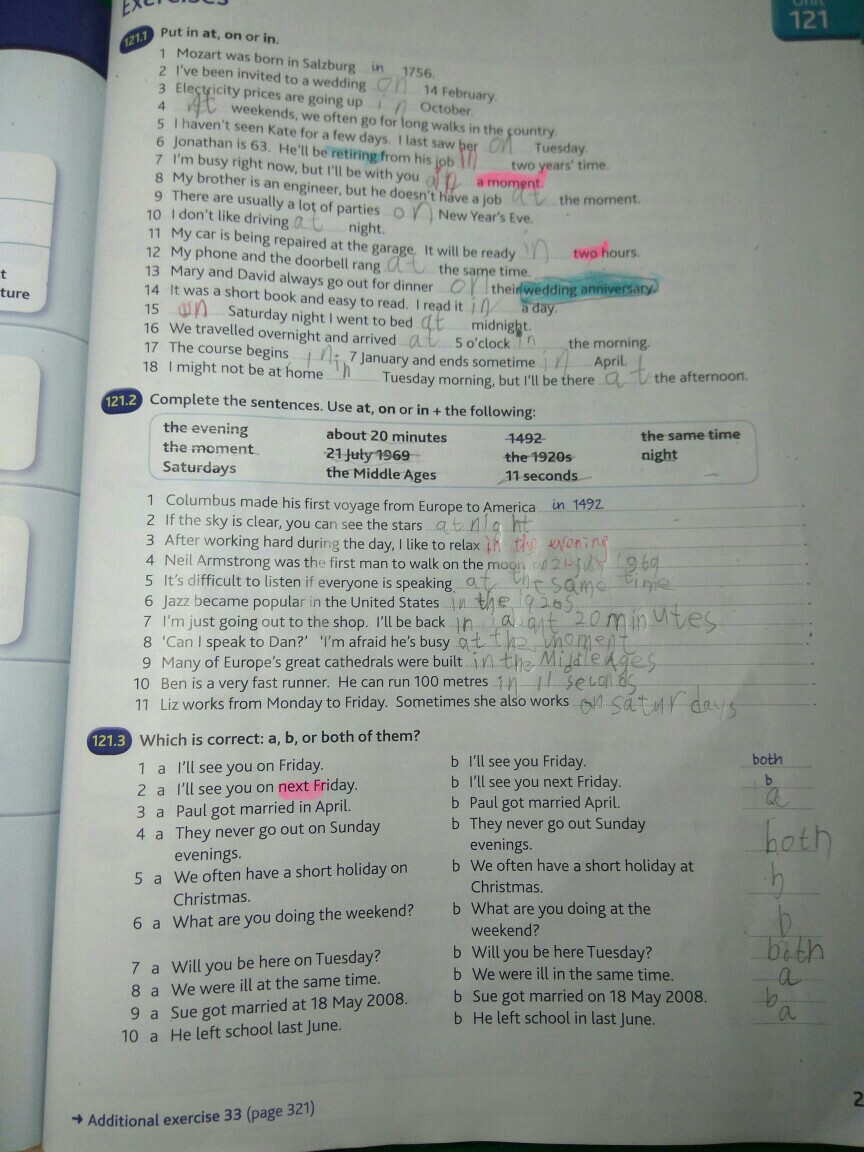 Exercises
Unit
121
121.1 Put in at, on or in.
1 Mozart was born in Salzburg in 1756.
2 I've been invited to a wedding on 14 February.
3 Electricity prices are going up in October.
4 At weekends, we often go for long walks in the country.
5 I haven't seen Kate for a few days. I last saw her on Tuesday.
6 Jonathan is 63. He'll be retiring from his job in two years' time.
7 I'm busy right now, but I'll be with you in a moment.
8 My brother is an engineer, but he doesn't have a job at the moment.
9 There are usually a lot of parties on New Year's Eve.
10 I don't like driving at night.
11 My car is being repaired at the garage. It will be ready in two hours.
12 My phone and the doorbell rang at the same time.
13 Mary and David always go out for dinner on their wedding anniversary.
14 It was a short book and easy to read. I read it in a day.
15 on Saturday night I went to bed at midnight.
16 We travelled overnight and arrived at 5 o'clock in the morning.
17 The course begins in 7 January and ends sometime in April.
18 I might not be at home in Tuesday morning, but I'll be there at the afternoon.
t
ture
121.2 Complete the sentences. Use at, on or in + the following:
the evening about 20 minutes 1492 the same time
the moment 21 July 1969 the 1920s night
Saturdays the Middle Ages 11 seconds
1 Columbus made his first voyage from Europe to America in 1492
2 If the sky is clear, you can see the stars at night
3 After working hard during the day, I like to relax in the evening
4 Neil Armstrong was the first man to walk on the moon on 21 july 1969
5 It's difficult to listen if everyone is speaking at the same time
6 Jazz became popular in the United States in the 1920s
7 I'm just going out to the shop. I'll be back in 20 minutes
8 'Can I speak to Dan?' 'I'm afraid he's busy at the moment
9 Many of Europe's great cathedrals were built in the Middle ages
10 Ben is a very fast runner. He can run 100 metres in 11 seconds
11 Liz works from Monday to Friday. Sometimes she also works on saturdays
121.3 Which is correct: a, b, or both of them?
1 a I'll see you on Friday. b I'll see you Friday. both
2 a I'll see you on next Friday. b I'll see you next Friday. b
3 a Paul got married in April. b Paul got married April. a
4 a They never go out on Sunday b They never go out Sunday
evenings. evenings. both
5 a We often have a short holiday on b We often have a short holiday at
Christmas. Christmas. b
6 a What are you doing the weekend? b What are you doing at the
weekend? b
7 a Will you be here on Tuesday? b Will you be here Tuesday? both
8 a We were ill at the same time. b We were ill in the same time. a
9 a Sue got married at 18 May 2008. b Sue got married on 18 May 2008. b
10 a He left school last June. b He left school in last June. a
→ Additional exercise 33 (page 321)
2